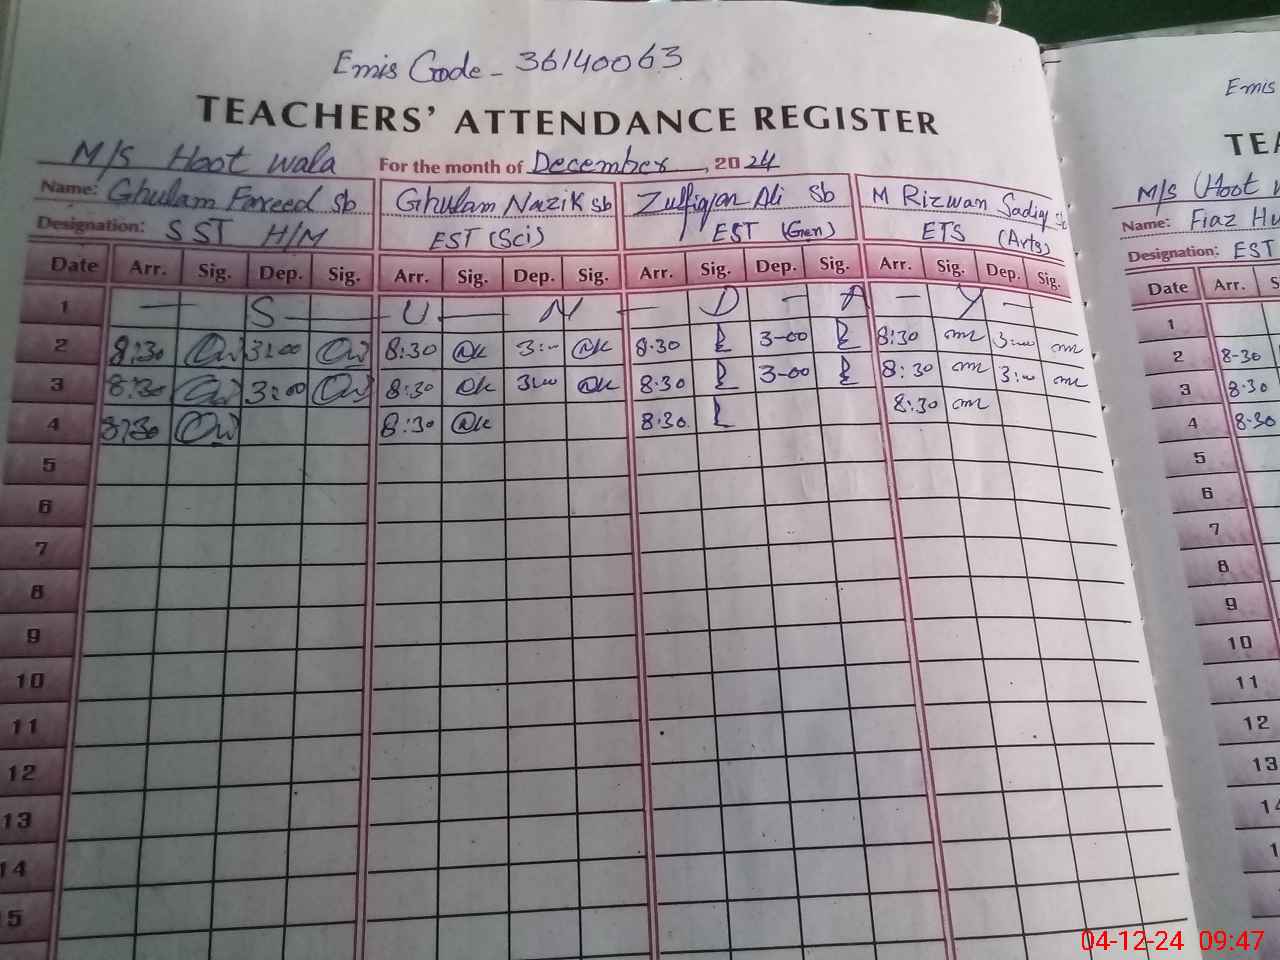 Emis Code - 36140063
TEACHERS' ATTENDANCE REGISTER
M/S Hoot wala For the month of December, 2024
Name: Ghulam Fareed Sb Ghulam Nazik Sb Zulfiqar Ali Sb M Rizwan Sadiq Sb
Designation: SST H/M EST (Sci) EST (Gen) ETS (Arts)
Date Arr. Sig. Dep. Sig. Arr. Sig. Dep. Sig. Arr. Sig. Dep. Sig. Arr. Sig. Dep. Sig.
1 — S — U — N — D — A — Y —
2 8:30 3:00 8:30 3:— 8-30 3-00 8:30 3:—
3 8:30 3:00 8:30 3:00 8-30 3-00 8:30 3:00
4 8:30 8:30 8-30 8:30
5
6
7
8
9
10
11
12
13
14
5
Emis
TEA
M/S Hoot
Name: Fiaz Hu
Designation: EST
Date Arr. S
1
2 8-30
3 8-30
4 8-30
5
6
7
8
9
10
11
12
13
14
1
04-12-24 09:47